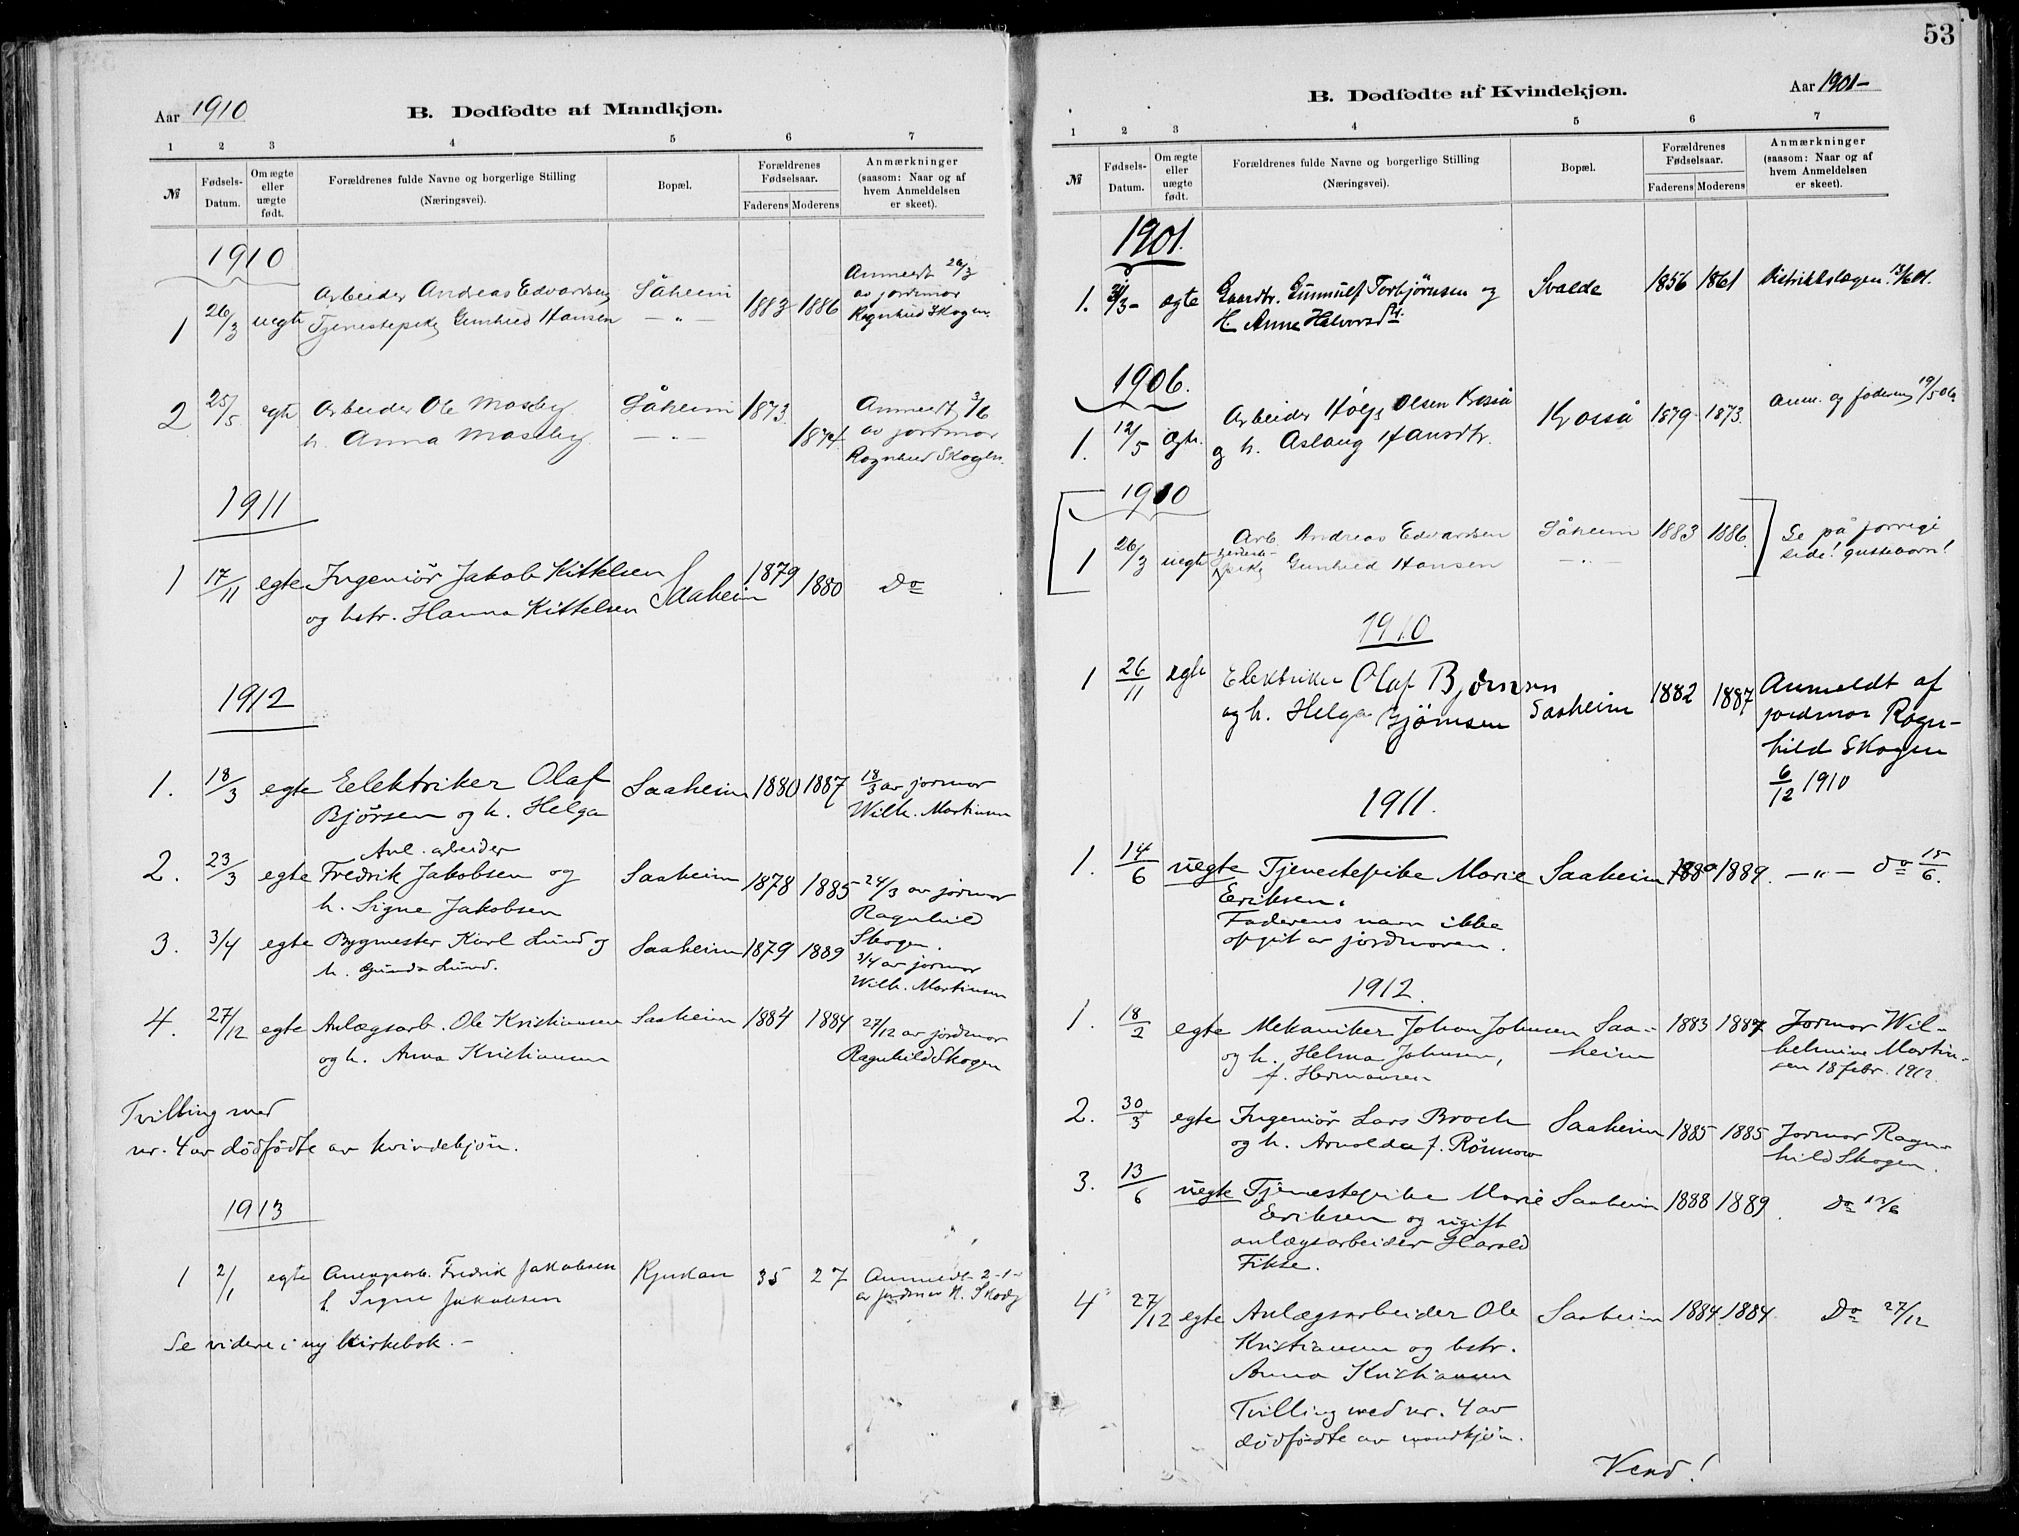 Aar 1910
B. Dødfødte af Mandkjøn.
1 2 3 4 5 6 7
№
Fødsels-Datum.
Om ægte eller uægte født.
Forældrenes fulde Navne og borgerlige Stilling
(Næringsvei).
Bopæl.
Forældrenes Fødselsaar.
Faderens Moderens
Anmærkninger
(saasom: Naar og af
hvem Anmeldelsen
er skeet).
1910
1 26/3 uegte Arbeider Andreas Edvardsen Såheim 1883 1886 Anmeldt 26/3
Tjenestepike Gunhild Hansen — „ — av jordmor
Ragnhild Skogen.
2 25/5 egte Arbeider Ole Mosby Såheim 1873 Anmeldt 3/6
h. Anna Mosby. — „ — 1874. av jordmor
Ragnhild Skogen.
1911
1 17/11 egte Ingeniør Jakob Kittelsen Saaheim 1879 1880 Do
og hstr. Hanna Kittelsen
1912
1. 18/3 egte Eelektriker Olaf Saaheim 1880 1887 18/3 av jormor
Bjørsen og h. Helga Wilh. Martinsen
Anl. arbeider
2. 23/3 egte Fredrik Jakobsen og Saaheim 1878 1885 24/3 av jormor
h. Signe Jakobsen Ragnhild
Skogen.
3. 3/4 egte Bygmester Karl Lund og Saaheim 1879 1889 3/4 av jormor
h. Gunda Lund. Wilh. Martinsen
4. 27/12 egte Anlægsarb. Ole Kristiansen Saaheim 1884 1884 27/12 av jordmor
og h. Anna Kristiansen Ragnhild Skogen
Tvilling med
nr. 4 av dødfødte av kvindekjøn.
1913
1 2/1 egte Anlægsarb. Fredrik Jakobsen Rjukan 35 27 Anmeldt 2-1-
h. Signe Jakobsen av jordmor
Se videre i ny kirkebok. —
53
Aar 1901-
B. Dødfødte af Kvindekjøn.
1 2 3 4 5 6 7
№
Fødsels-Datum.
Om ægte eller uægte født.
Forældrenes fulde Navne og borgerlige Stilling
(Næringsvei).
Bopæl.
Forældrenes Fødselsaar.
Faderens Moderens
Anmærkninger
(saasom: Naar og af
hvem Anmeldelsen
er skeet).
1901.
1. ægte Gaardbr. Gunnulf Torbjørnsen og Svalde 1856 1861 Distriktslægen 13/6 01.
H. Anne Halvorsdtr.
1906.
1. 12/5 ægte. Arbeider Olsen Krosså Krosså 1879 1873. Anm. og faderen 19/5 06.
og h. Aslaug Hansdtr.
1910
1 26/3 uegte Arb Andreas Edvardsen Såheim 1883 1886. Se på forrige
tjenestepike Gunhild Hansen — „ — side!
1910
1 26/11 egte Elektriker Olaf Bjørnsen Saaheim 1882 1887 Anmeldt af
og h. Helga Bjørnsen jordmor Ragn-
hild Skogen
6/12 1910
1911.
1. 14/6 uegte Tjenestepike Marie Saaheim 1880 1889. — „ — do 15/6.
Eriksen.
Faderens navn ikke
opgit av jordmoren.
1912.
1. 18/2 egte Mekaniker Johan Johnsen Saa- 1883 1887 Jormor Wil-
og h. Helma Johnsen, heim helmine Martin-
f. Hermansen sen 18 febr. 1912.
2. 30/3 egte Ingeniør Lars Broch Saaheim 1885 1885 Jormor Ragn-
og h. Arnolda f. Rønnow hild Skogen.
3. 13/6 uegte Tjenestepike Marie Saaheim 1888 1889 Do 13/6
Eriksen og ugift
anlægsarbeider Harald
Fikse.
4 27/12 egte Anlægsarbeider Ole Saaheim 1884 1884 Do 27/12
Kristiansen og hstr.
Anna Kristiansen
Tvilling med nr. 4 av
dødfødte av mandkjøn.
Vend!